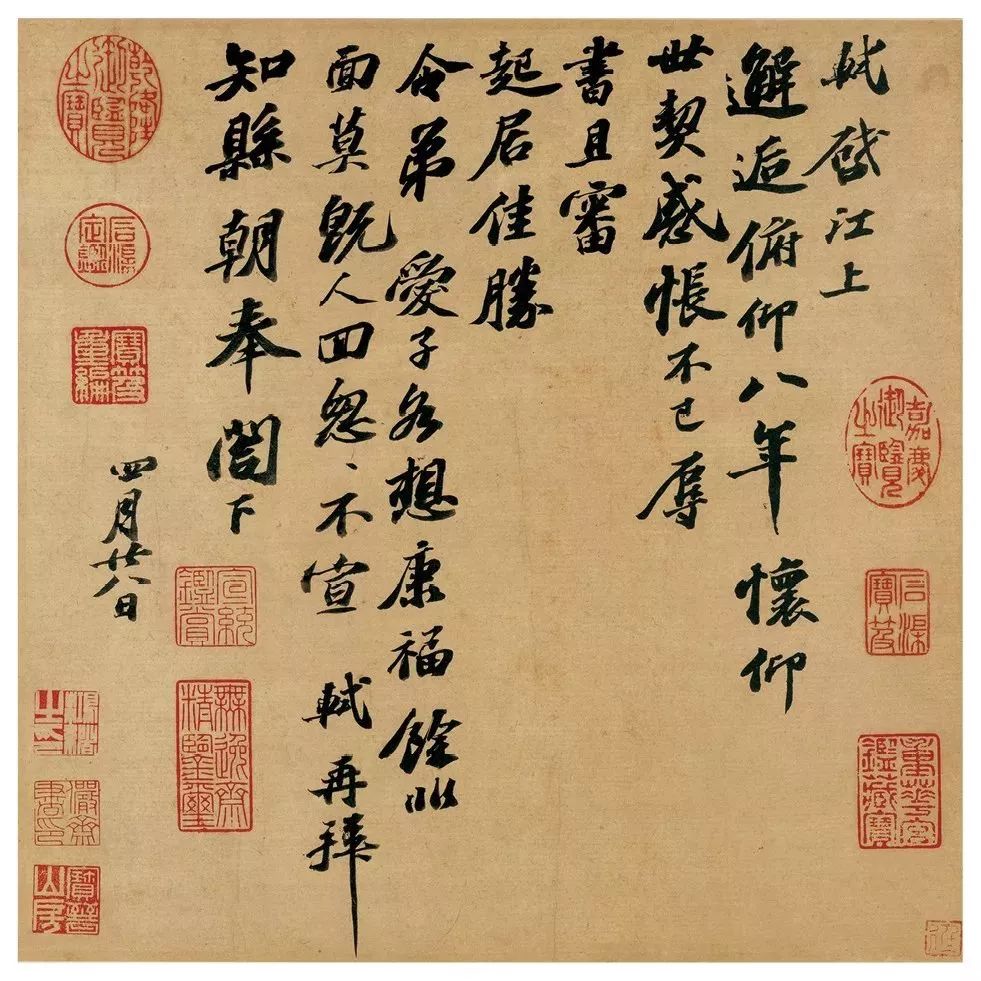 軾啓江上
邂逅俯仰八年懷仰
世契感悵不已辱
書且審
起居佳勝
令弟愛子各想康福餘非
面莫既人回怱、不宣軾再拜
知縣朝奉閤下
四月廿八日
嘉慶御覽之寶
石渠寶笈
重華宮鑑藏寶
宣統鑑賞
無逸齋精鑒璽
乾隆御覽之寶
石渠定鑑
寶笈重編